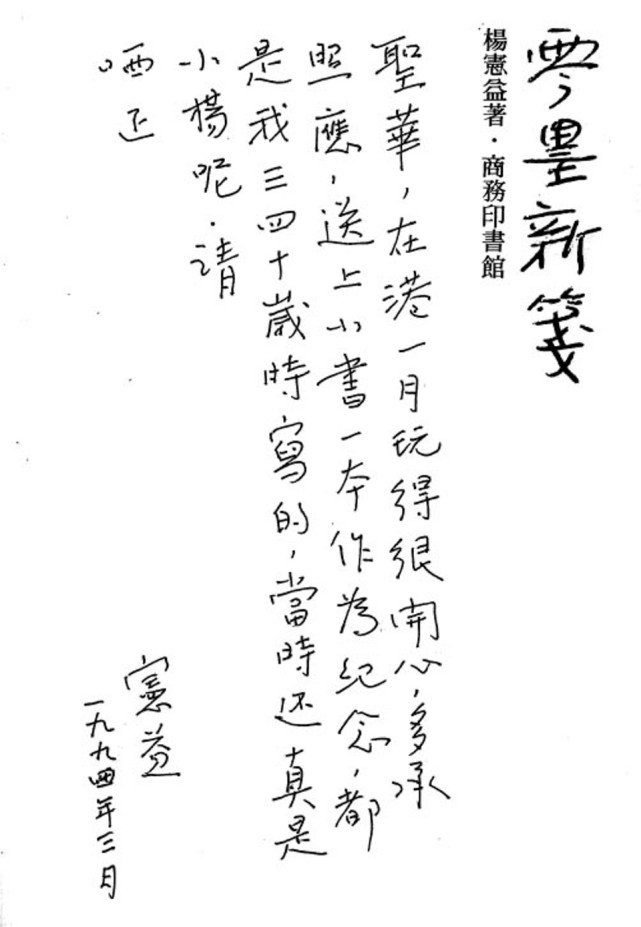 零墨新箋
楊憲益著・商務印書館
聖華，在港一月玩得很開心，多承
照應，送上小書一本作為紀念，都
是我三四十歲時寫的，當時还真是
小楊呢．請
哂正
憲益
一九九四年三月